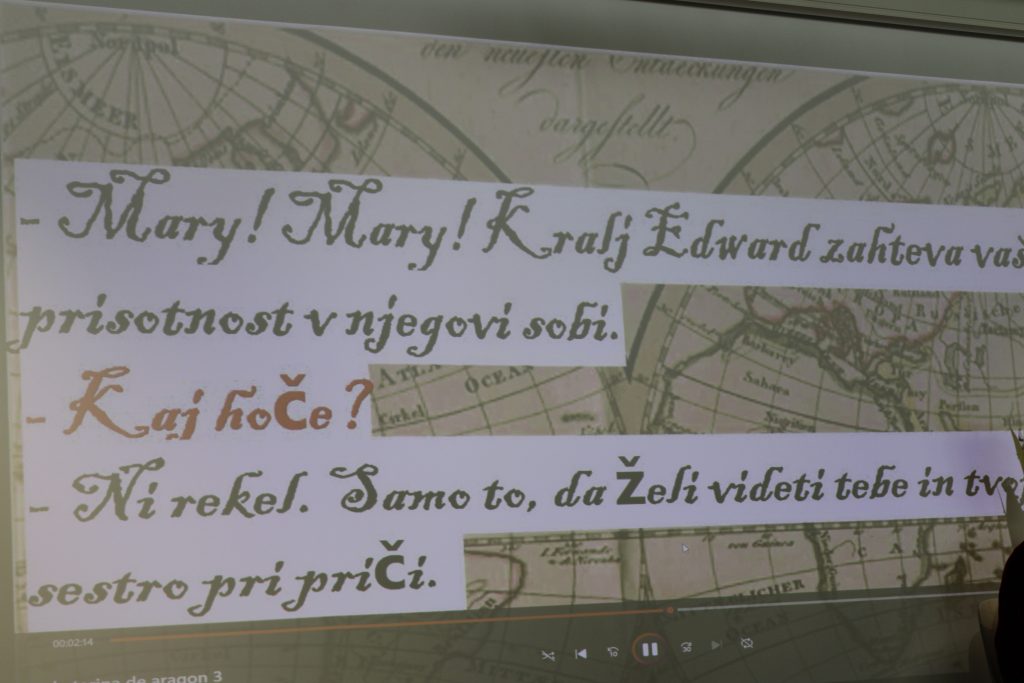 Nordpol
EISMEER
den neuesten Entdeckungen
dargestellt.
- Mary! Mary! Kralj Edward zahteva vaš
prisotnost v njegovi sobi.
ATLA
OCEAN
Barbarey
Sahara
Persien
- Kaj hoČe?
- Ni rekel. Samo to, da Želi videti tebe in tvo
sestro pri priČi.
LICHER
00:02:14
de aragon 3